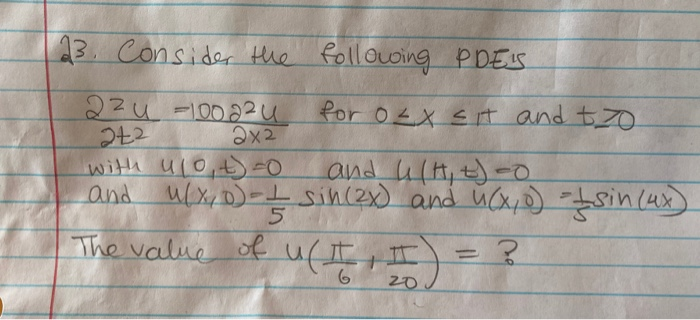 23. Consider the following PDE's
∂²u/∂t² = 100 ∂²u/∂x² for 0 ≤ x ≤ π and t ≥ 0
with u(0,t)=0 and u(π,t)=0
and u(x,0) = 1/5 sin(2x) and u(x,0) = 1/5 sin(4x)
The value of u(π/6, π/20) = ?